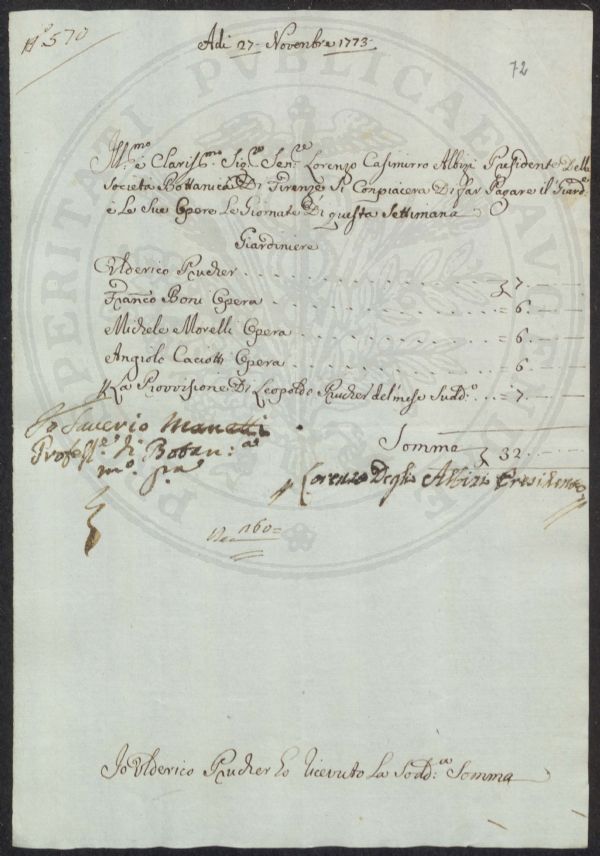 N.° 570
Adi 27 Novenbre 1773
72
Ill.mo e Claris.mo Sig.re Sen.re Lorenzo Casimirro Albizi Presidente Della
Societa Bottanica Di Firenze Si Conpiacera Di far Pagare il Giard.
e Le Sue Opere Le Giornate Di questa Settimana
Giardiniere
Ulderico Prucher . . . . . . . 7. —
Franco Boni Opera . . . . . . = 6. —
Michele Morelli Opera . . . . . = 6. —
Angiolo Caciotti Opera . . . . . = 6. —
La Provvisione Di Leopoldo Prucher del mese Sudd.o . . = 7. —
Io Saverio Manetti
Profess.re di Botan.ca
m.o p.a
Somma 32. —
Lorenzo Degli Albizi Presidente
160
Io Ulderico Prucher ho Ricevuto La Sodd.a Somma
PERITATI PUBLICAE